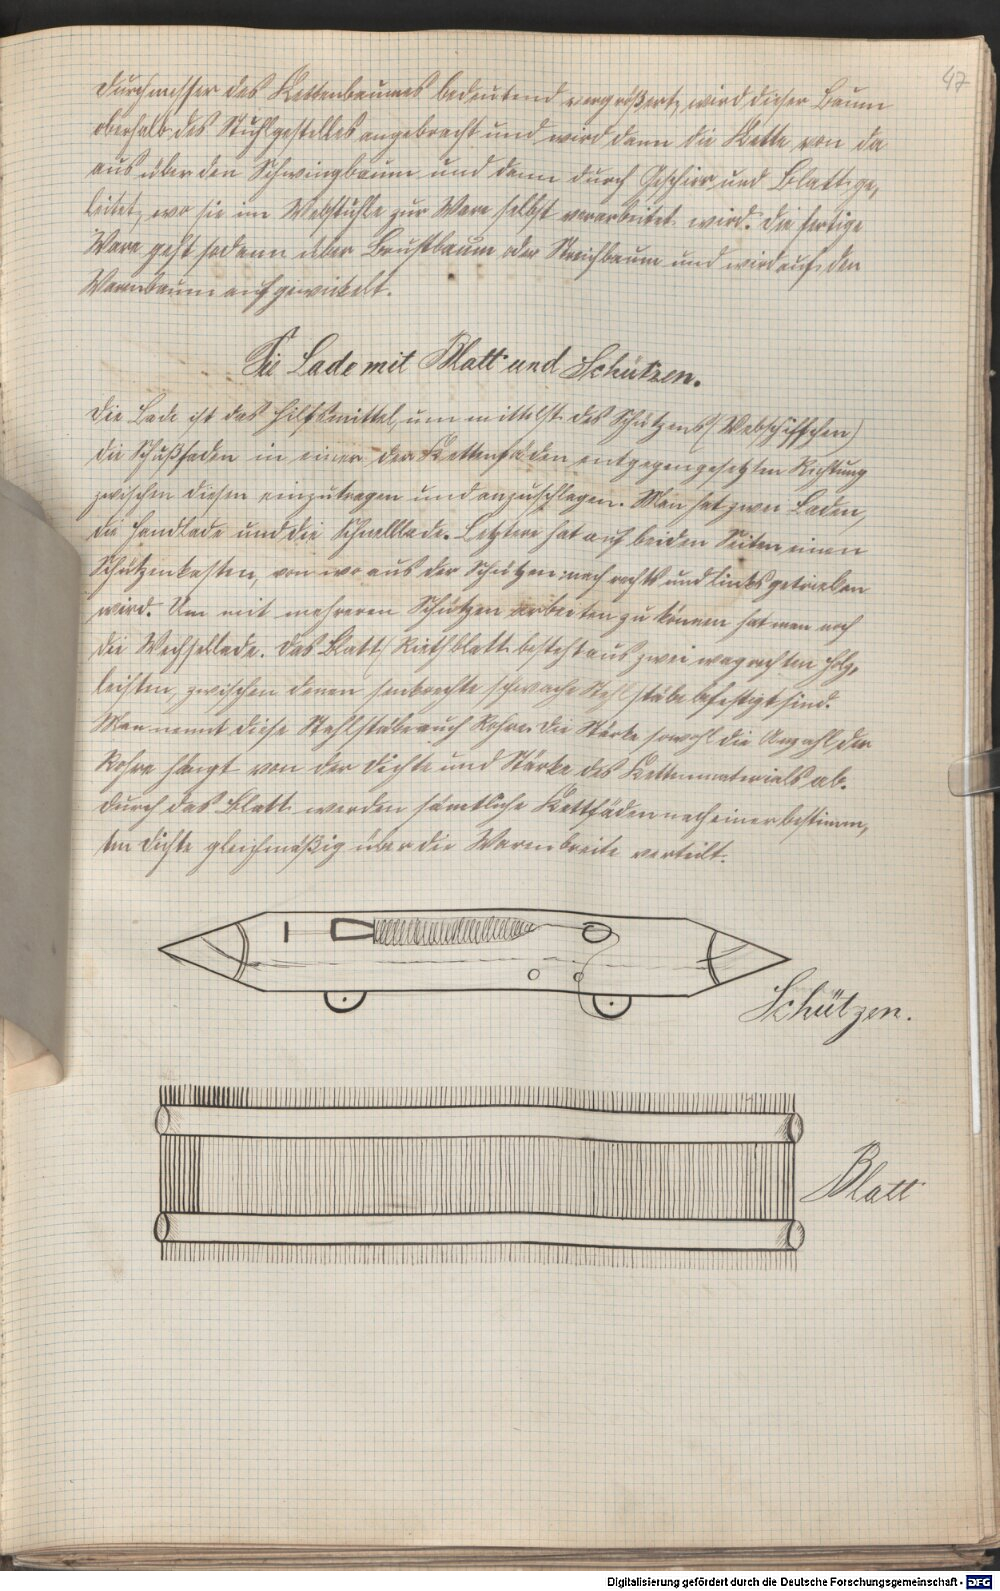 47
Durchmesser des Kettenbaumes bedeutend vergrößert, wird dieser Baum
oberhalb des Stuhlgestelles angebracht und wird dann die Kette von da
aus über den Schwingbaum und dann durch Geschirr und Blatt ge-
leitet, wo sie im Webstuhle zur Ware selbst verarbeitet wird. Die fertige
Ware geht sodann über Brustbaum oder Streichbaum und wird auf den
Warenbaum aufgewickelt.
Die Lade mit Blatt und Schützen.
Die Lade ist das Hilfsmittel, um mittelst des Schützens (Webschiffchen)
die Schußfaden in einer den Kettenfäden entgegengesetzten Richtung
zwischen diesen einzutragen und anzuschlagen. Man hat zwei Laden,
die Handlade und die Schnellade. Letztere hat auf beiden Seiten einen
Schützenkasten, von wo aus der Schützen nach rechts und links getrieben
wird. Um mit mehreren Schützen arbeiten zu können hat man noch
die Wechsellade. Das Blatt (Riethblatt besteht aus zwei wagrechten Holz-
leisten, zwischen denen senkrechte schwache Stahlstäbe befestigt sind.
Man nennt diese Stahlstäbe auch Rohre. Die Stärke sowohl die Anzahl der
Rohre hängt von der Dichte und Stärke des Kettenmaterials ab.
Durch das Blatt werden sämtliche Kettfäden nach einer bestimm-
ten Dichte gleichmäßig über die Warenbreite verteilt.
Schützen.
Blatt
Digitalisierung gefördert durch die Deutsche Forschungsgemeinschaft - DFG